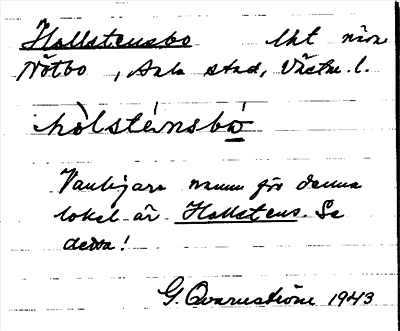 Hallstensbo lht nära
Nötbo, Sala stad, Västm. l.
hòlsténsbó
Vanligare namn för denna
lokal är Hallstens. Se
detta!
G. Qvarnström 1943